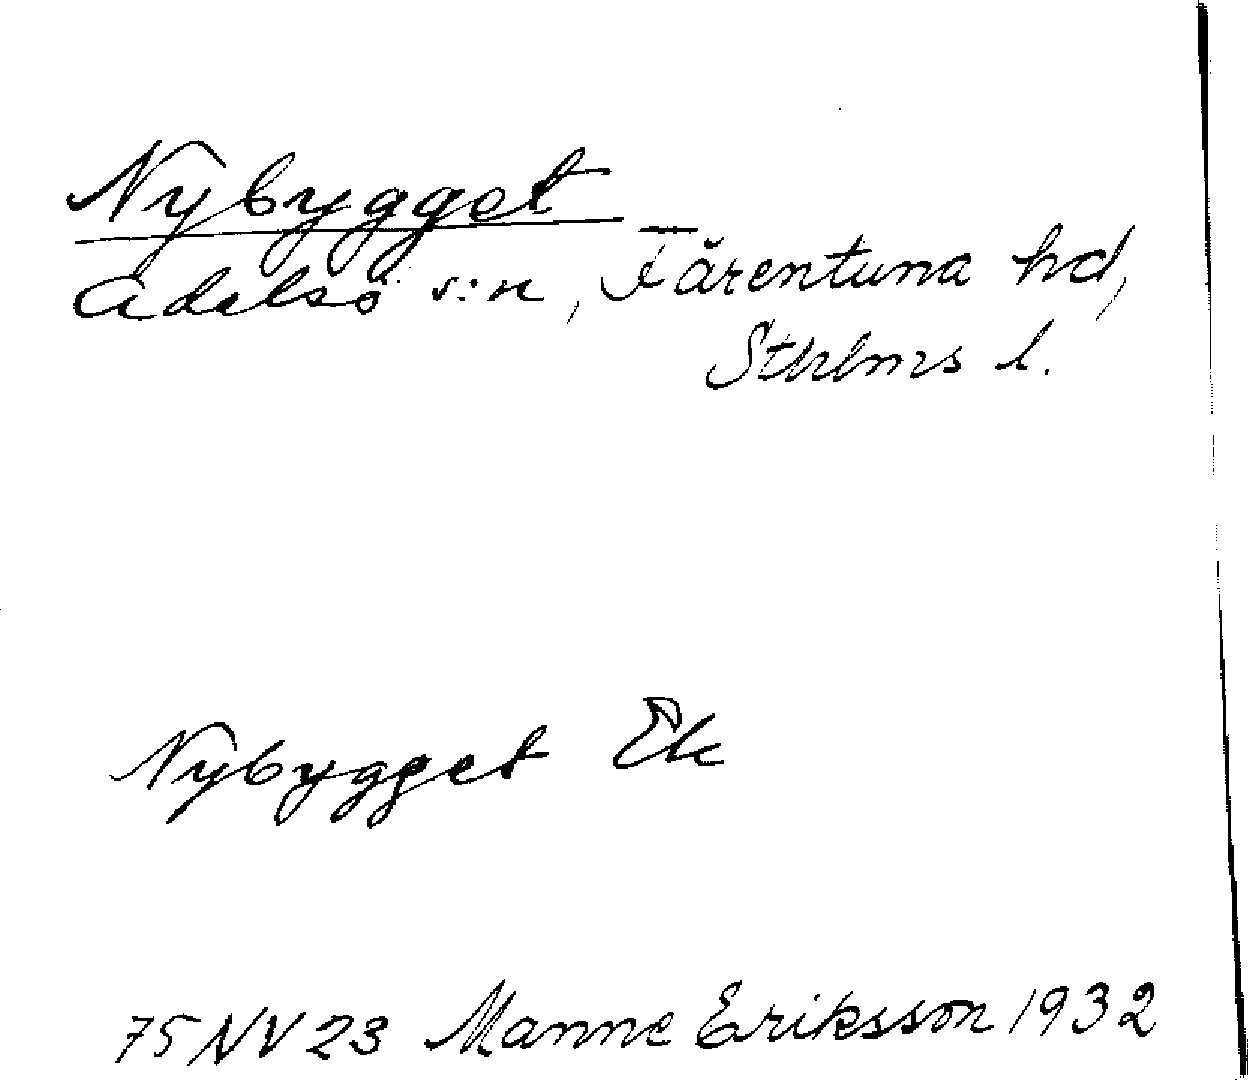 Nybygget
Adelsö s:n, Färentuna hd,
Sthlms l.
Nybygget Ek
75 NV 23 Manne Eriksson 1932